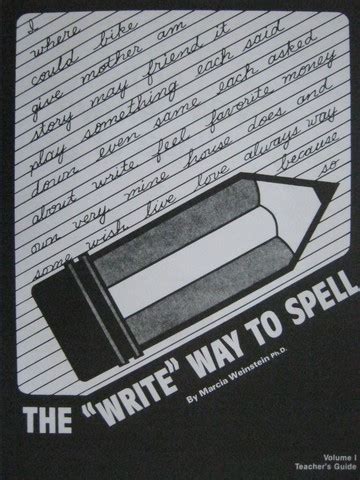 I
where
could bike
give mother am
story may friend it
play something each said
down even same each asked
about write feel favorite money
own very mine house does and
some wish live love always way
because
so
THE "WRITE" WAY TO SPELL
By Marcia Weinstein Ph.D.
Volume I
Teacher's Guide